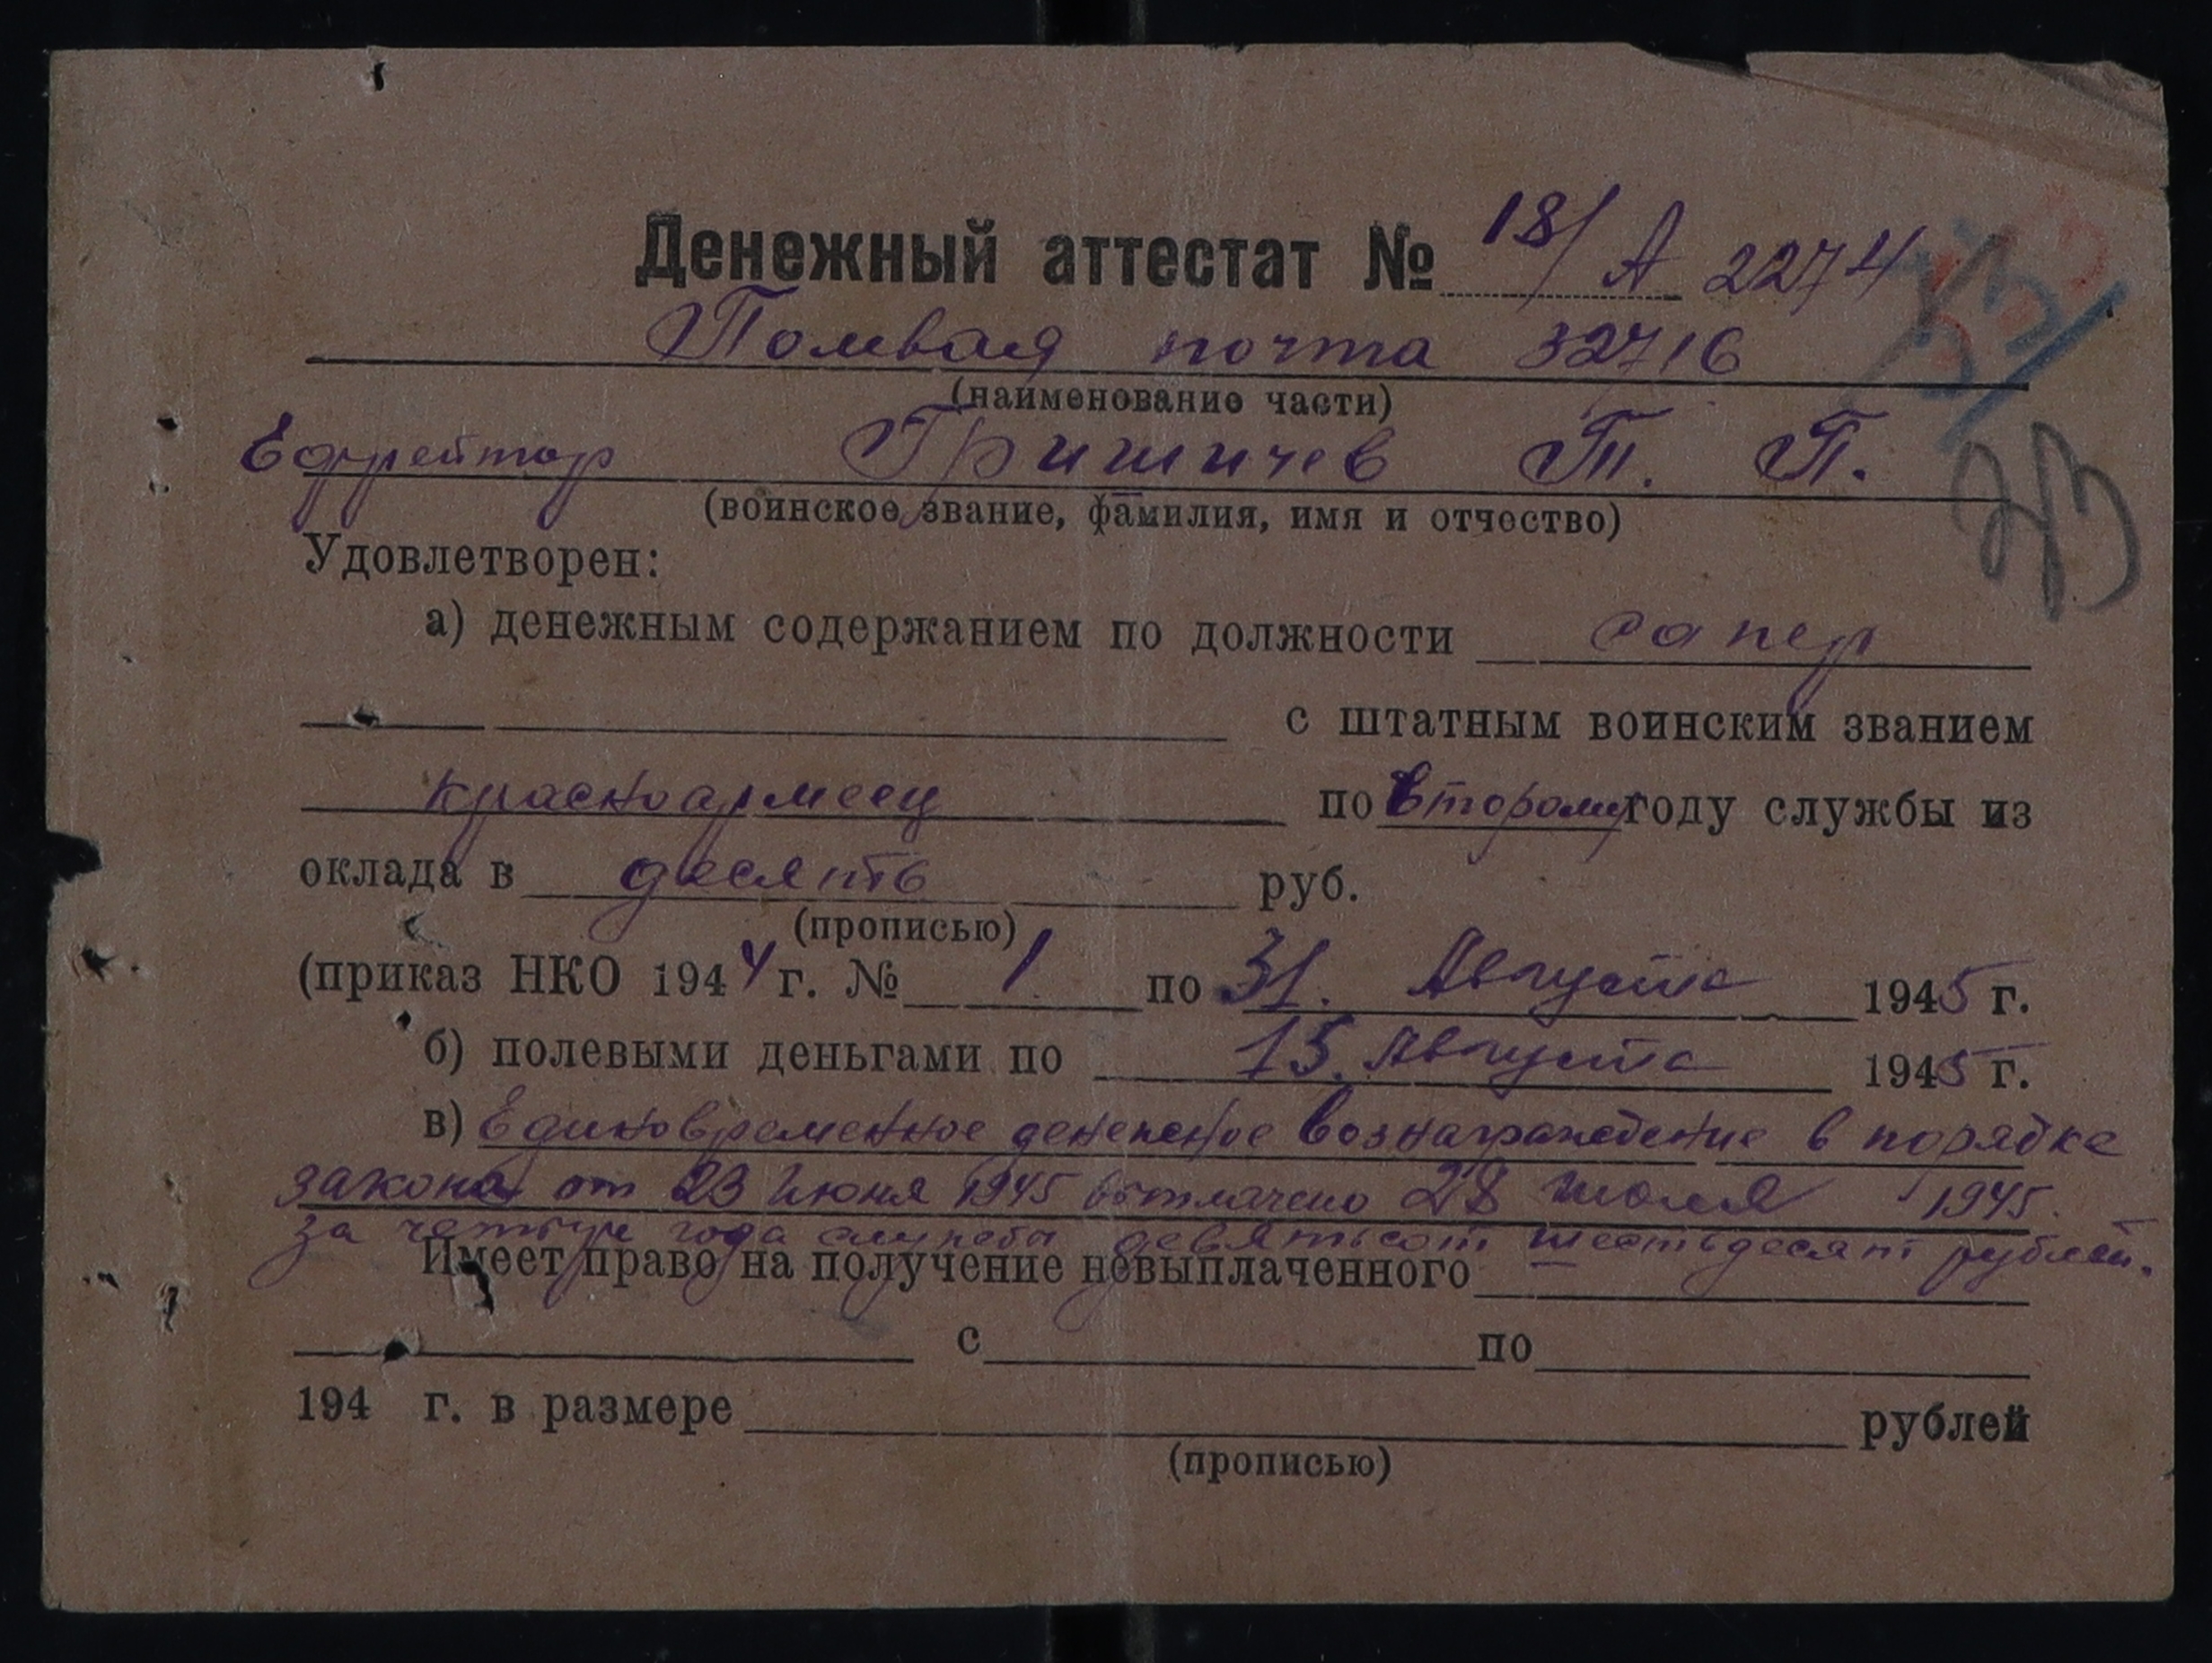 Денежный аттестат № 18/ А 2274
Полевая почта 32716
(наименование части)
Ефрейтор Гришичев Т. П.
(воинское звание, фамилия, имя и отчество)
Удовлетворен:
а) денежным содержанием по должности сапер
с штатным воинским званием
красноармеец по второму году службы из
оклада в десять руб.
(прописью)
(приказ НКО 1944 г. № 1 по 31. Августа 1945 г.
б) полевыми деньгами по 15. Августа 1945 г.
в) Единовременное денежное вознаграждение в порядке
закона от 23 июня 1945 выплачено 28 июля 1945.
за четыре года службы девятьсот шестьдесят рублей.
Имеет право на получение невыплаченного
с по
194 г. в размере рублей
(прописью)